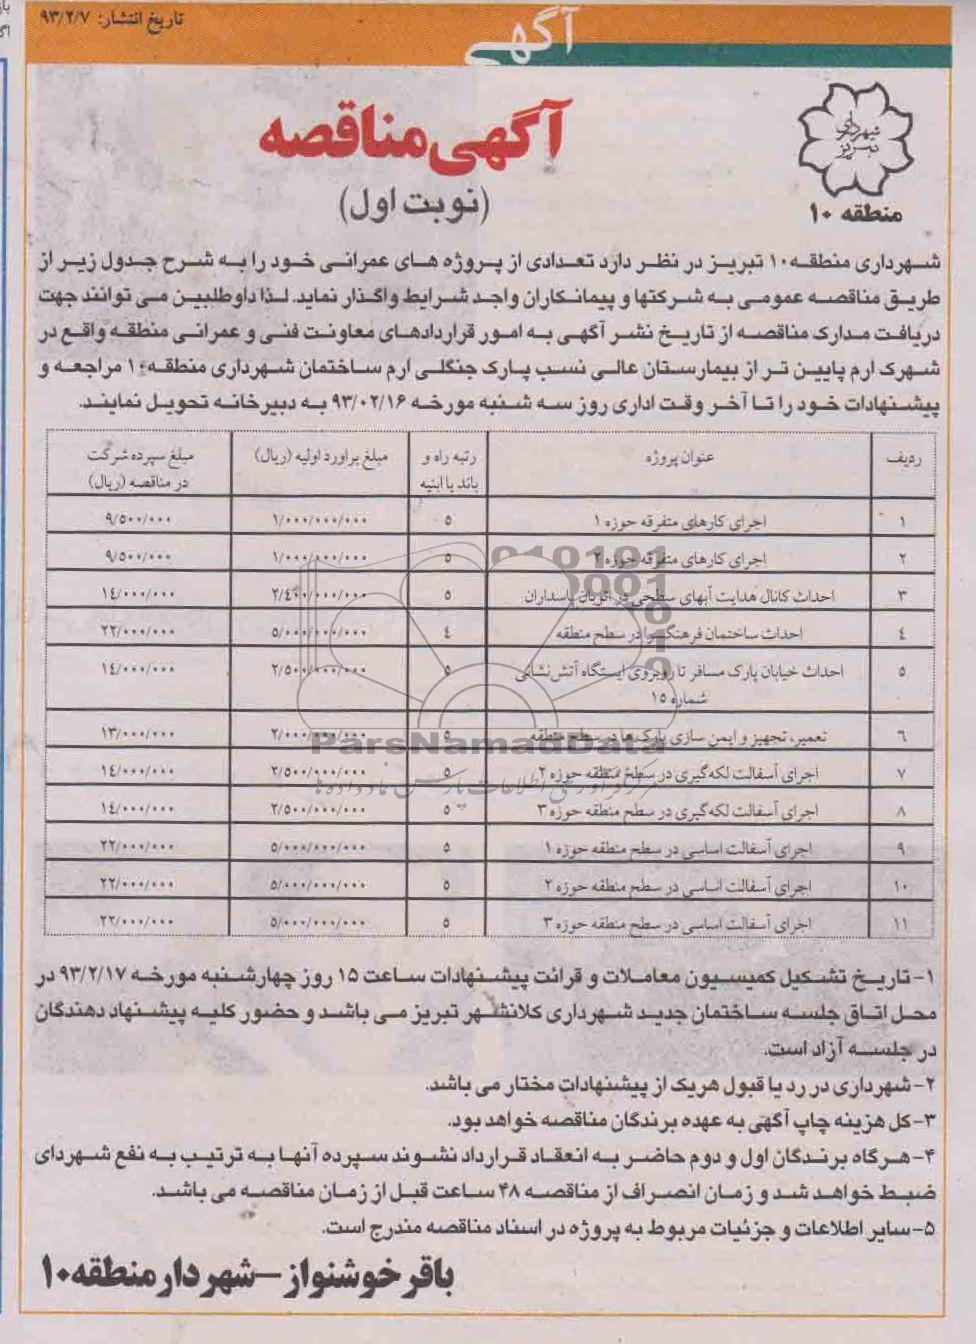 تاریخ انتشار: ۹۳/۲/۷
آگهی
شهرداری تبریز
منطقه ۱۰
آگهی مناقصه
(نوبت اول)
شهرداری منطقه ۱۰ تبریز در نظر دارد تعدادی از پروژه های عمرانی خود را به شرح جدول زیر از
طریق مناقصه عمومی به شرکتها و پیمانکاران واجد شرایط واگذار نماید. لذا داوطلبین می توانند جهت
دریافت مدارک مناقصه از تاریخ نشر آگهی به امور قراردادهای معاونت فنی و عمرانی منطقه واقع در
شهرک ارم پایین تر از بیمارستان عالی نسب پارک جنگلی ارم ساختمان شهرداری منطقه ۱۰ مراجعه و
پیشنهادات خود را تا آخر وقت اداری روز سه شنبه مورخه ۹۳/۰۲/۱۶ به دبیرخانه تحویل نمایند.
ردیف عنوان پروژه رتبه راه و باند یا ابنیه مبلغ براورد اولیه (ریال) مبلغ سپرده شرگت در مناقصه (ریال)
۱ اجرای کارهای متفرقه حوزه ۱ ۵ ۱/۰۰۰/۰۰۰/۰۰۰ ۹/۵۰۰/۰۰۰
۲ اجرای کارهای متفرقه حوزه ۲ ۵ ۱/۰۰۰/۰۰۰/۰۰۰ ۹/۵۰۰/۰۰۰
۳ احداث کانال هدایت آبهای سطحی در اتوبان پاسداران ۵ ۲/۴۰۰/۰۰۰/۰۰۰ ۱۴/۰۰۰/۰۰۰
۴ احداث ساختمان فرهنگسرا در سطح منطقه ۴ ۵/۰۰۰/۰۰۰/۰۰۰ ۲۲/۰۰۰/۰۰۰
۵ احداث خیابان پارک مسافر تا روبروی ایستگاه آتش نشانی ۵ ۲/۵۰۰/۰۰۰/۰۰۰ ۱۴/۰۰۰/۰۰۰
شماره ۱۵
۶ تعمیر، تجهیز و ایمن سازی پارک ها در سطح منطقه ۵ ۲/۰۰۰/۰۰۰/۰۰۰ ۱۳/۰۰۰/۰۰۰
۷ اجرای آسفالت لکه گیری در سطح منطقه حوزه ۲ ۵ ۲/۵۰۰/۰۰۰/۰۰۰ ۱۴/۰۰۰/۰۰۰
۸ اجرای آسفالت لکه گیری در سطح منطقه حوزه ۳ ۵ ۲/۵۰۰/۰۰۰/۰۰۰ ۱۴/۰۰۰/۰۰۰
۹ اجرای آسفالت اساسی در سطح منطقه حوزه ۱ ۵ ۵/۰۰۰/۰۰۰/۰۰۰ ۲۲/۰۰۰/۰۰۰
۱۰ اجرای آسفالت اساسی در سطح منطقه حوزه ۲ ۵ ۵/۰۰۰/۰۰۰/۰۰۰ ۲۲/۰۰۰/۰۰۰
۱۱ اجرای آسفالت اساسی در سطح منطقه حوزه ۳ ۵ ۵/۰۰۰/۰۰۰/۰۰۰ ۲۲/۰۰۰/۰۰۰
ParsNamadData
۱- تاریخ تشکیل کمیسیون معاملات و قرائت پیشنهادات ساعت ۱۵ روز چهارشنبه مورخه ۹۳/۲/۱۷ در
محل اتاق جلسه ساختمان جدید شهرداری کلانشهر تبریز می باشد و حضور کلیه پیشنهاد دهندگان
در جلسه آزاد است.
۲- شهرداری در رد یا قبول هریک از پیشنهادات مختار می باشد.
۳- کل هزینه چاپ آگهی به عهده برندگان مناقصه خواهد بود.
۴- هرگاه برندگان اول و دوم حاضر به انعقاد قرارداد نشوند سپرده آنها به ترتیب به نفع شهردای
ضبط خواهد شد و زمان انصراف از مناقصه ۴۸ ساعت قبل از زمان مناقصه می باشد.
۵- سایر اطلاعات و جزئیات مربوط به پروژه در اسناد مناقصه مندرج است.
باقر خوشنواز - شهردار منطقه ۱۰